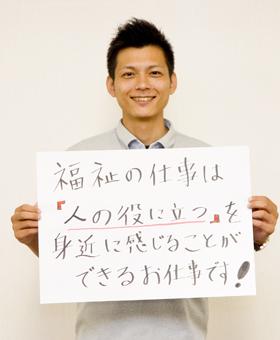 福祉の仕事は
『人の役に立つ』を
身近に感じることが
できるお仕事です!